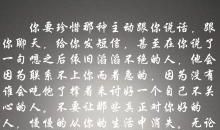 你要珍惜那种主动跟你说话，跟
你聊天，给你发短信，甚至在你说了
一句嗯之后依旧滔滔不绝的人，他会
因为联系不上你而着急的，因为没有
谁会吃他了撑着来讨好一个自己不关
心的人，不要让那些真正对你好的
人，慢慢的从你的生活中消失，无论